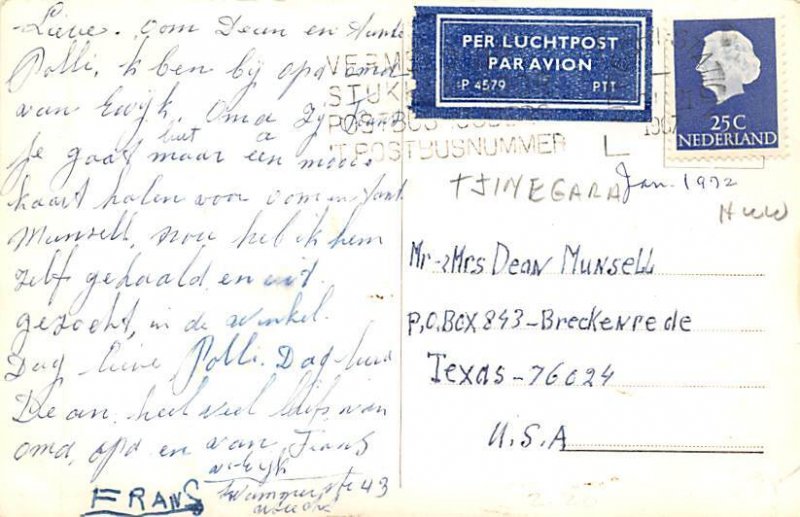 Lieve. Oom Dean en tante
Polli. Ik ben bij opa oma
van Ewijk. Oma zij Frans
je gaat maar een mooie
but a
kaart halen voor oom en tant
Munsell, nou heb ik hem
zelf gehaald en uit
gezocht, in de winkel.
Dag lieve Polli. Dag lieve
Dean. heel veel liefs van
oma, opa en van Frans
v Ewijk
43
FRANS
PER LUCHTPOST
PAR AVION
P 4579 PTT
POSTBUS
'T POSTBUSNUMMER
25 C
NEDERLAND
TJINEGARA
Jan. 1972
Mr-&Mrs Dean Munsell
P.O.BOX 843-Breckenrede
Texas-76024
U.S.A